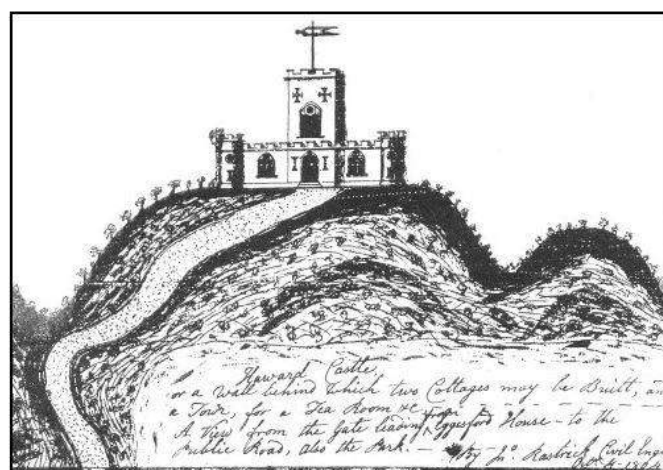 Haward Castle,
or a Wall behind Which two Cottages may be Built, and
a Tower, for a Tea Room &c
A View from the Gate leading from Eggesford House - to the
Public Road, also the Park. - By Jno. Rastrick Civil Engr